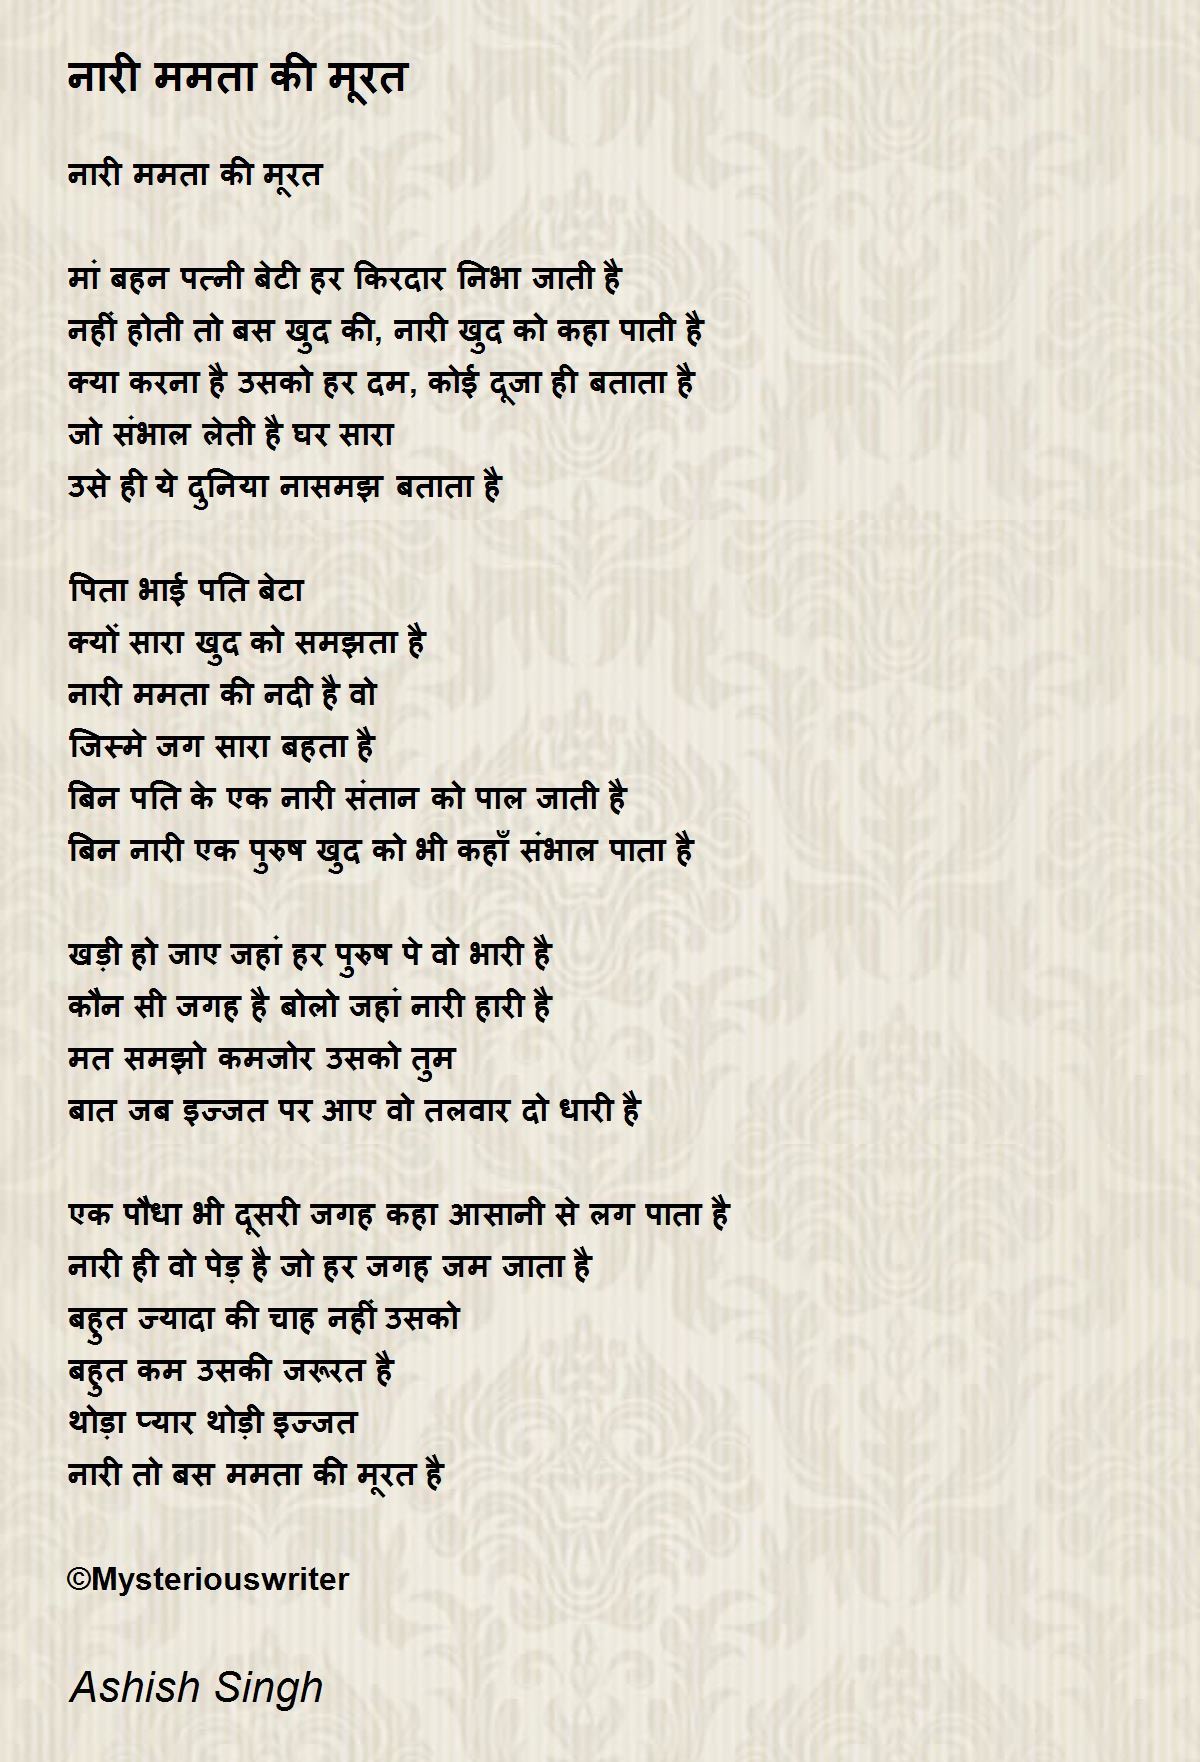 नारी ममता की मूरत
नारी ममता की मूरत
मां बहन पत्नी बेटी हर किरदार निभा जाती है
नहीं होती तो बस खुद की, नारी खुद को कहा पाती है
क्या करना है उसको हर दम, कोई दूजा ही बताता है
जो संभाल लेती है घर सारा
उसे ही ये दुनिया नासमझ बताता है
पिता भाई पति बेटा
क्यों सारा खुद को समझता है
नारी ममता की नदी है वो
जिस्मे जग सारा बहता है
बिन पति के एक नारी संतान को पाल जाती है
बिन नारी एक पुरुष खुद को भी कहाँ संभाल पाता है
खड़ी हो जाए जहां हर पुरुष पे वो भारी है
कौन सी जगह है बोलो जहां नारी हारी है
मत समझो कमजोर उसको तुम
बात जब इज्जत पर आए वो तलवार दो धारी है
एक पौधा भी दूसरी जगह कहा आसानी से लग पाता है
नारी ही वो पेड़ है जो हर जगह जम जाता है
बहुत ज्यादा की चाह नहीं उसको
बहुत कम उसकी जरूरत है
थोड़ा प्यार थोड़ी इज्जत
नारी तो बस ममता की मूरत है
©Mysteriouswriter
Ashish Singh